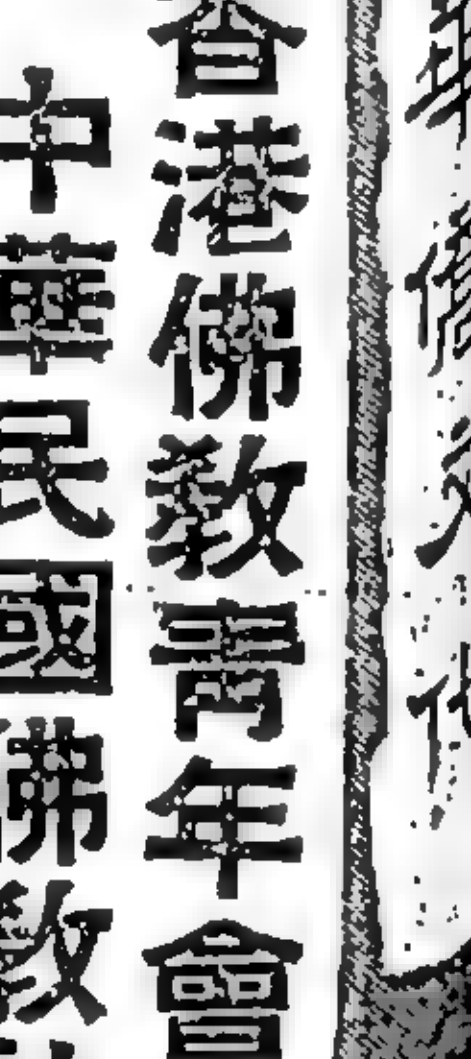 華僑
代
香港佛教青年會
中華民國佛教